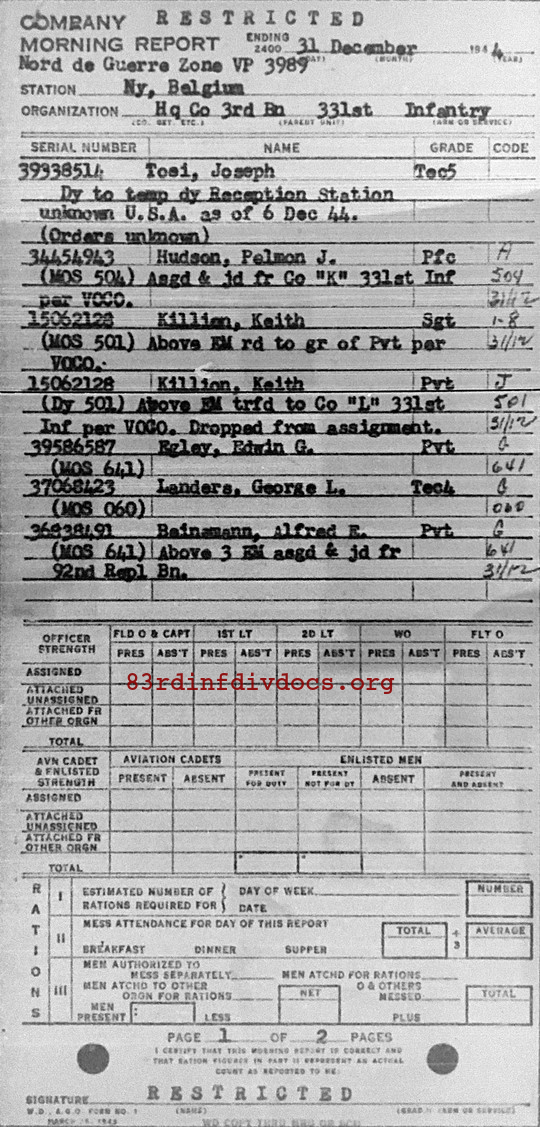 COMPANY RESTRICTED
MORNING REPORT ENDING 2400 31 December 1944
(DAY) (MONTH) (YEAR)
Nord de Guerre Zone VP 3989
STATION Ny, Belgium
ORGANIZATION Hq Co 3rd Bn 331st Infantry
(CO. DET. ETC.) (PARENT UNIT) (ARM OR SERVICE)
SERIAL NUMBER NAME GRADE CODE
39338514 Tosi, Joseph Tec5
Dy to temp dy Reception Station
unknown U.S.A. as of 6 Dec 44.
(Orders unknown)
34454943 Hudson, Pelmon J. Pfc A
(MOS 504) Asgd & jd fr Co "K" 331st Inf 504
per VOCO. 31/12
15062128 Killian, Keith Sgt 1-8
(MOS 501) Above EM rd to gr of Pvt per 31/12
VOCO.
15062128 Killian, Keith Pvt J
(Dy 501) Above EM trfd to Co "L" 331st 501
Inf per VOCO. Dropped from assignment. 31/12
39586587 Egley, Edwin G. Pvt G
(MOS 641) 641
37068423 Landers, George L. Tec4 G
(MOS 060) 060
36838491 Beinemann, Alfred E. Pvt G
(MOS 641) Above 3 EM asgd & jd fr 641
92nd Repl Bn. 31/12
OFFICER STRENGTH FLD O & CAPT 1ST LT 2D LT WO FLT O
PRES ABS'T PRES ABS'T PRES ABS'T PRES ABS'T PRES ABS'T
ASSIGNED
83rdinfdivdocs.org
ATTACHED UNASSIGNED
ATTACHED FR OTHER ORGN
TOTAL
AVN CADET & ENLISTED STRENGTH AVIATION CADETS ENLISTED MEN
PRESENT ABSENT PRESENT FOR DUTY PRESENT NOT FOR DY ABSENT PRESENT AND ABSENT
ASSIGNED
ATTACHED UNASSIGNED
ATTACHED FR OTHER ORGN
TOTAL
RATIONS
I ESTIMATED NUMBER OF RATIONS REQUIRED FOR { DAY OF WEEK DATE NUMBER
II MESS ATTENDANCE FOR DAY OF THIS REPORT TOTAL ÷ 3 AVERAGE
BREAKFAST DINNER SUPPER
III MEN AUTHORIZED TO MESS SEPARATELY MEN ATCHD FOR RATIONS
MEN ATCHD TO OTHER ORGN FOR RATIONS NET O & OTHERS MESSED TOTAL
MEN PRESENT : LESS PLUS
PAGE 1 OF 2 PAGES
I CERTIFY THAT THIS MORNING REPORT IS CORRECT AND
THAT RATION FIGURES IN PART II REPRESENT AN ACTUAL
COUNT AS REPORTED TO ME:
RESTRICTED
SIGNATURE
W.D., A.G.O. FORM NO. 1 (NAME) (GRADE) (ARM OR SERVICE)
MARCH 1943